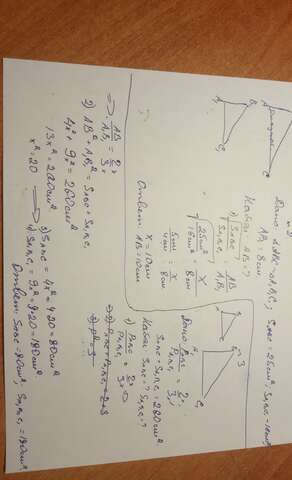 Дано: △ABC ~ A₁B₁C₁; S ABC = 25см²; S A₁B₁C₁ = 16см²
A₁B₁ = 8см
Найти: AB = ?
√25см² / √16см² = X / 8см
5см / 4см = x / 8см
X = 10см
Ответ: AB = 10см
№3
Дано: P ABC / P A₁B₁C₁ = 2 / 3;
S ABC + S A₁B₁C₁ = 260см²
Найти: S ABC = ? S A₁B₁C₁ = ?
1) P ABC / P A₁B₁C₁ = 2x / 3x ⇒
⇒ AB / A₁B₁ = 2x / 3x
2) AB² + A₁B₁² = S ABC + S A₁B₁C₁
4x² + 9x² = 260см²
13x² = 260см²
x² = 20
3) S ABC = 4x² = 4·20 = 80см²
4) S A₁B₁C₁ = 9x² = 9·20 = 180см²
Ответ: S ABC = 80см²; S A₁B₁C₁ = 180см²